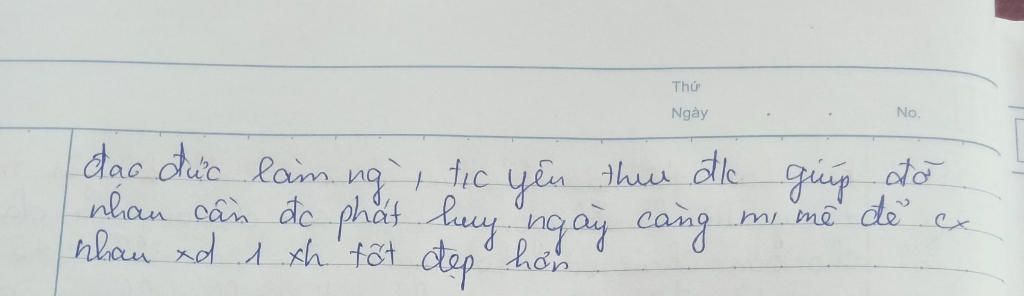 Thứ
Ngày . . No.
đạo đức làm ng`, t/c yêu thw đk giúp đỡ
nhau cần đc phát huy ngày càng m. mẽ để cx
nhau xd 1 xh tốt đẹp hơn